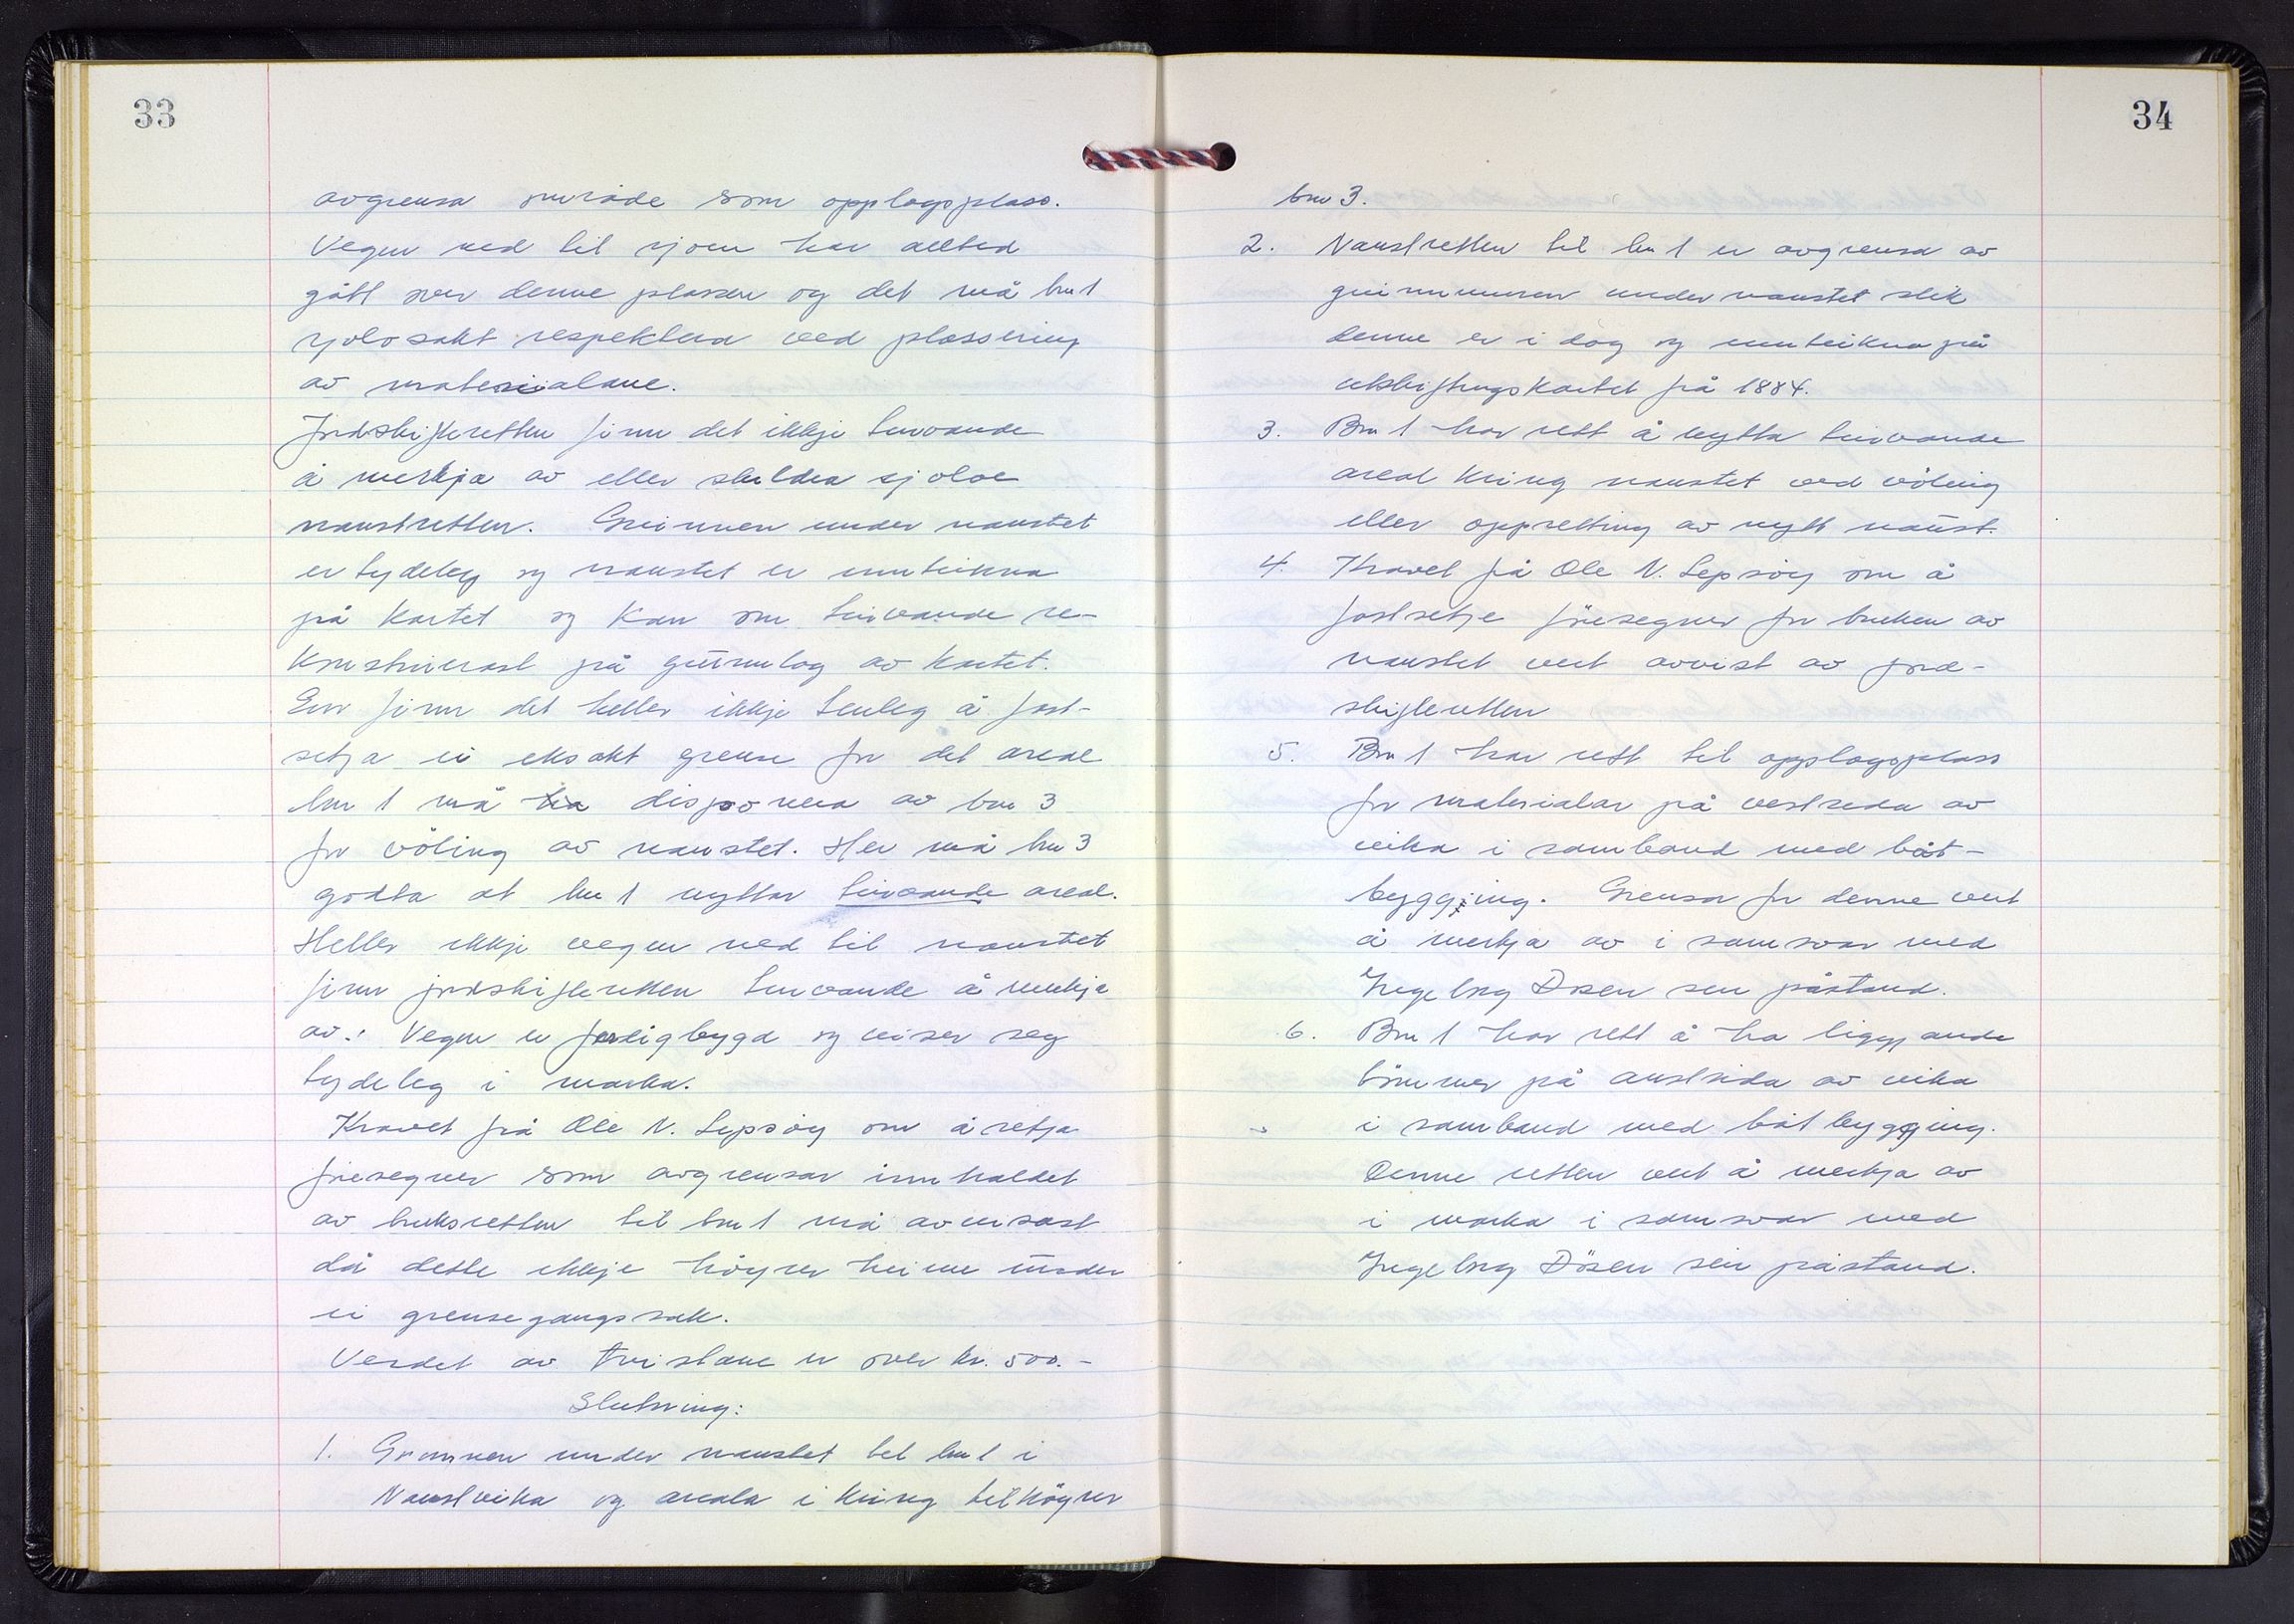 33
avgrensa område som opplagsplass.
Vegen ned til sjøen har alltid
gått over denne plassen og det må bnr 1
sjølvsakt respektera ved plassering
av materialane.
Jordskifteretten finn det ikkje turvande
å merkja av eller skildra sjølve
naustretten. Grunnen under naustet
er tydeleg og naustet er innteikna
på kartet og kan om turvande re-
konstruerast på grunnlag av kartet.
Ein finn det heller ikkje tenleg å fast-
setja ei eksakt grense for det areal
bnr 1 må disponera av bnr 3
for völing av naustet. Her må bnr 3
godta at bnr 1 nyttar turvande areal.
Heller ikkje vegen ned til naustet
finn jordskifteretten turvande å merkja
av. Vegen er ferdigbygd og viser seg
tydeleg i marka.
Kravet frå Ole N. Lepsöy om å setja
föresegner som avgrensar innhaldet
av bruksretten til bnr 1 må avvisast
då dette ikkje höyrer heime under
ei grensegangssak.
Verdet av tvistane er over kr. 500.-
Slutning:
1. Grunnen under naustet til bnr 1 i
Naustvika og areala i kring tilhöyrer
34
bnr 3.
2. Naustretten til bnr 1 er avgrensa av
grunnmuren under naustet slik
denne er i dag og innteikna på
utskiftingskartet frå 1884.
3. Bnr 1 har rett å nytta turvande
areal kring naustet ved völing
eller oppretting av nytt naust.
4. Kravet frå Ole N. Lepsöy om å
fastsetje föresegner for bruken av
naustet vert avvist av jord-
skifteretten
5. Bnr 1 har rett til opplagsplass
for materialar på vestsida av
vika i samband med båt-
bygging. Grensa for denne vert
å merkja av i samsvar med
Ingeborg Dösen sin påstand.
6. Bnr 1 har rett å ha liggjande
tömmer på austsida av vika
i samband med båtbygging.
Denne retten vert å merkja av
i marka i samsvar med
Ingeborg Dösen sin påstand.